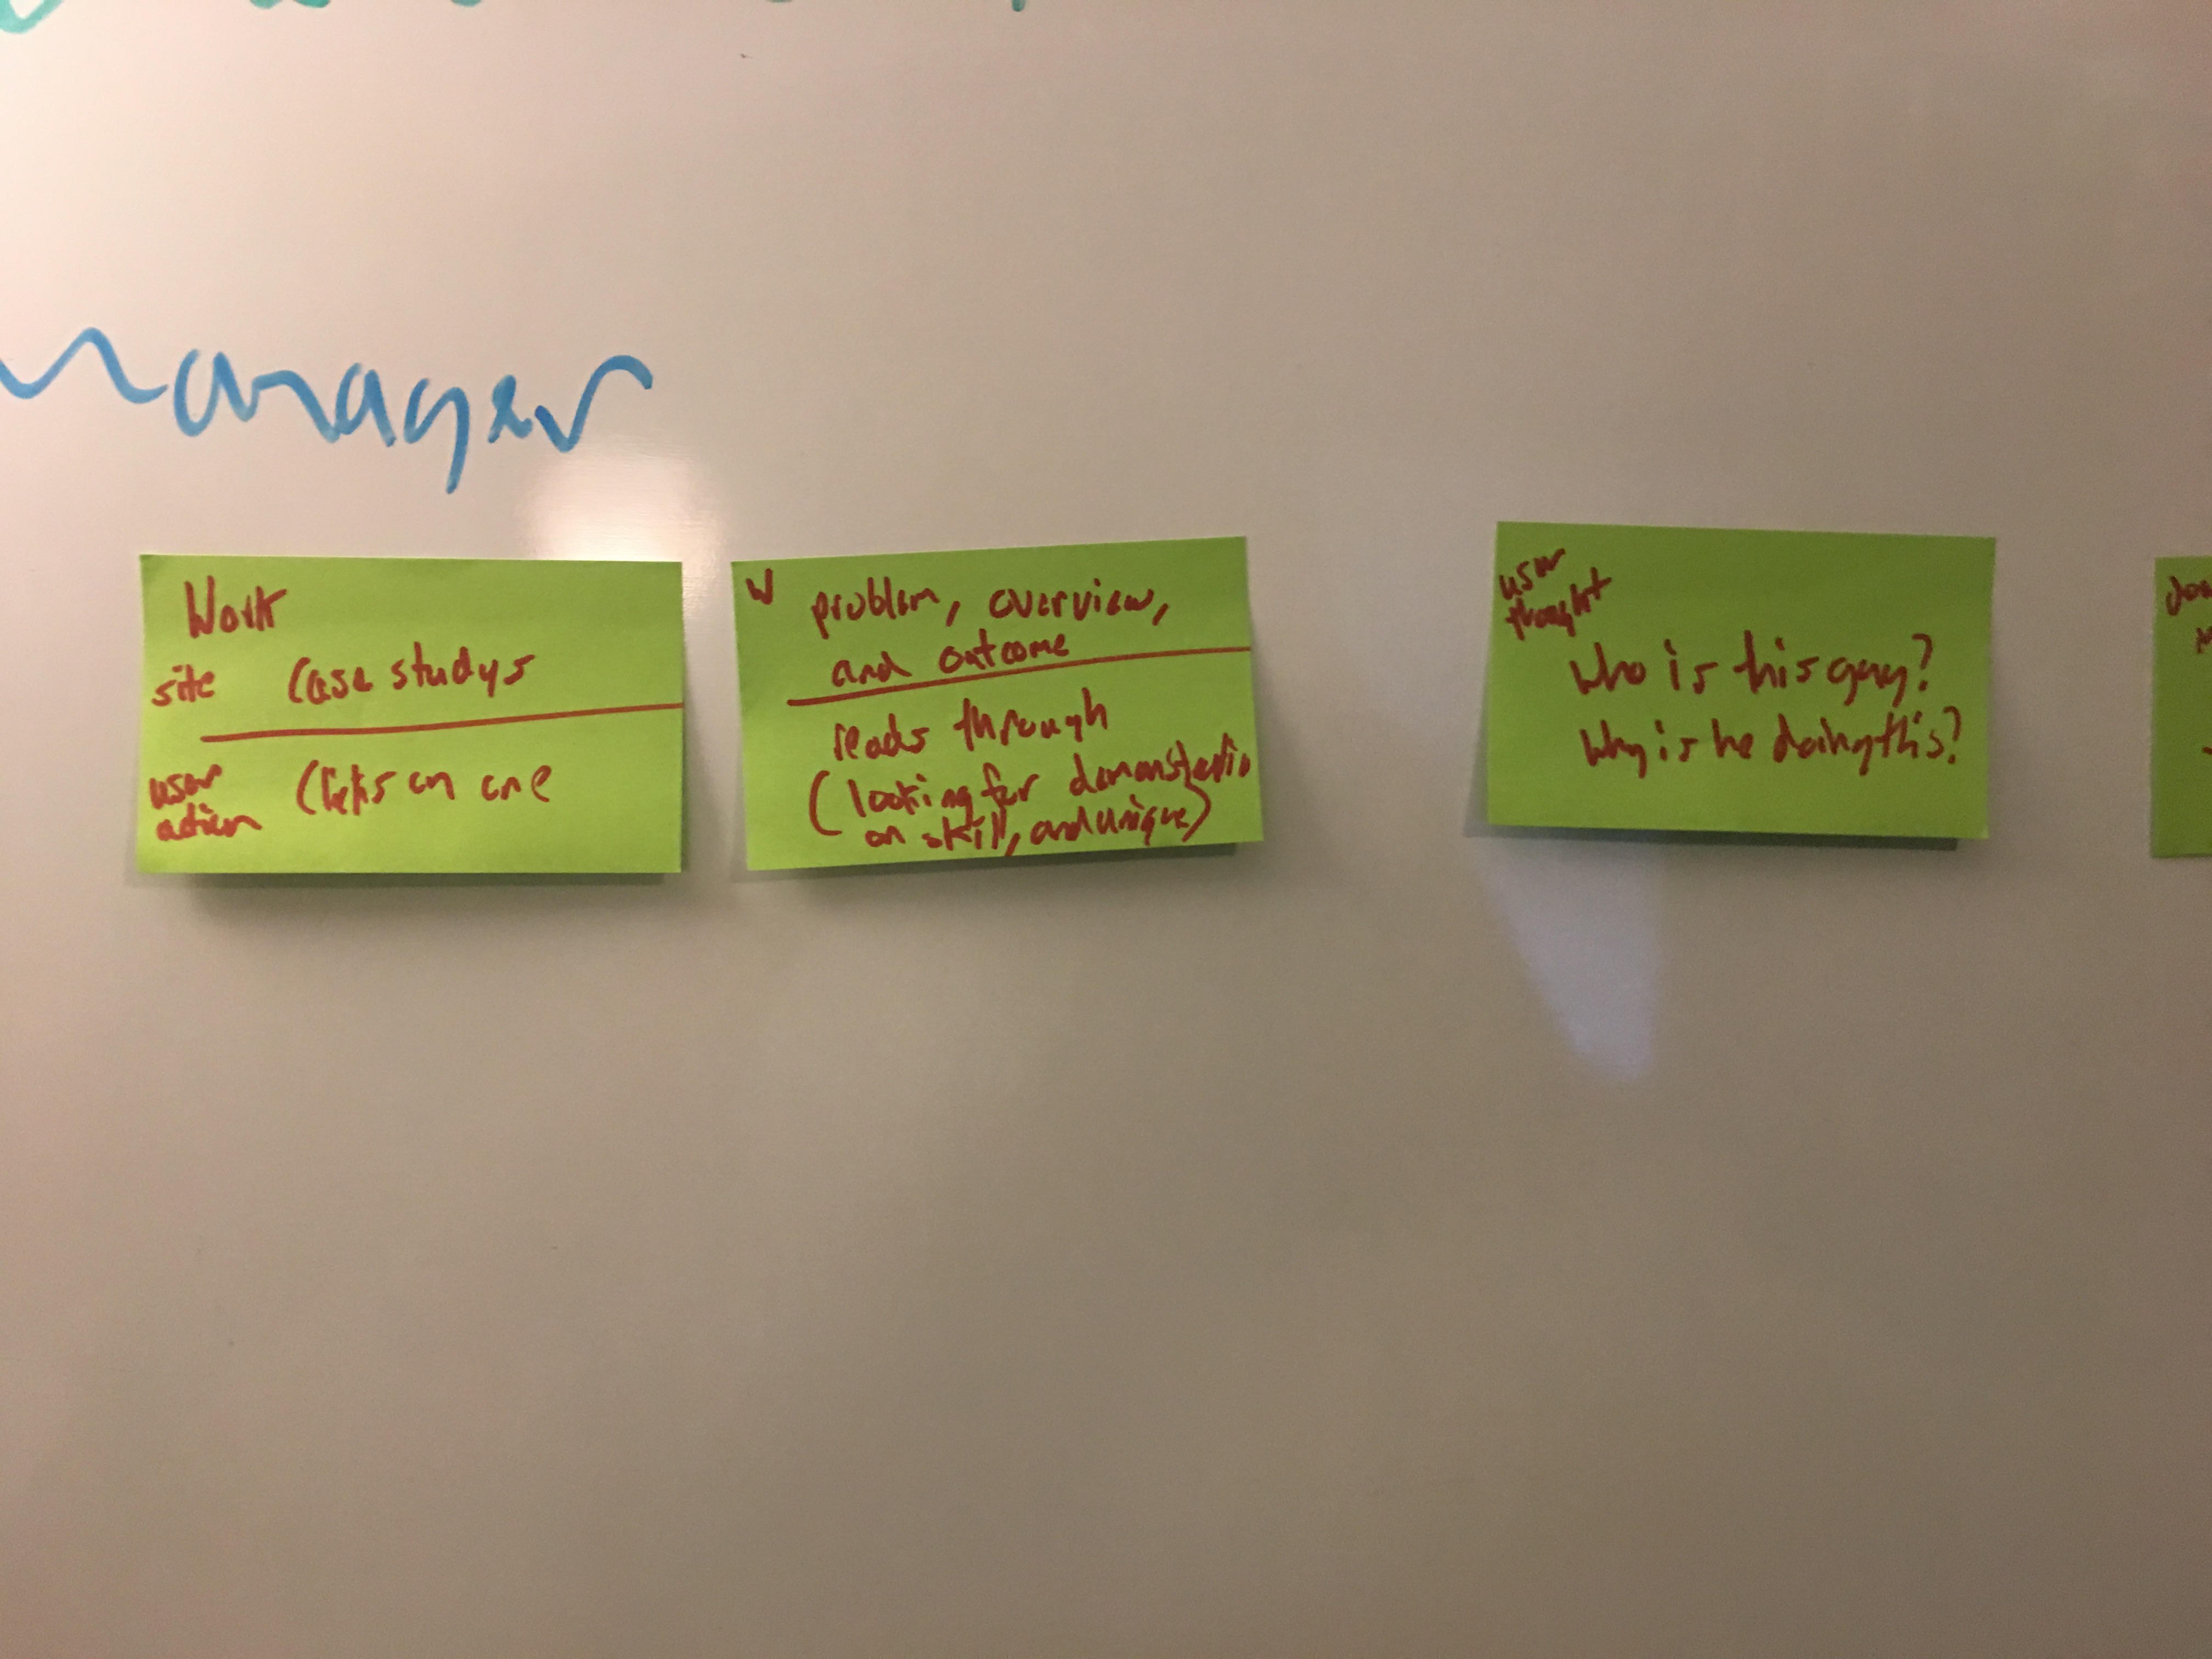 manager
Work
site case studys
user
action clicks on one
W problem, overview,
and outcome
reads through
(looking for demonstratio
on skill, and unique)
user
thought
who is this guy?
Why is he doing this?